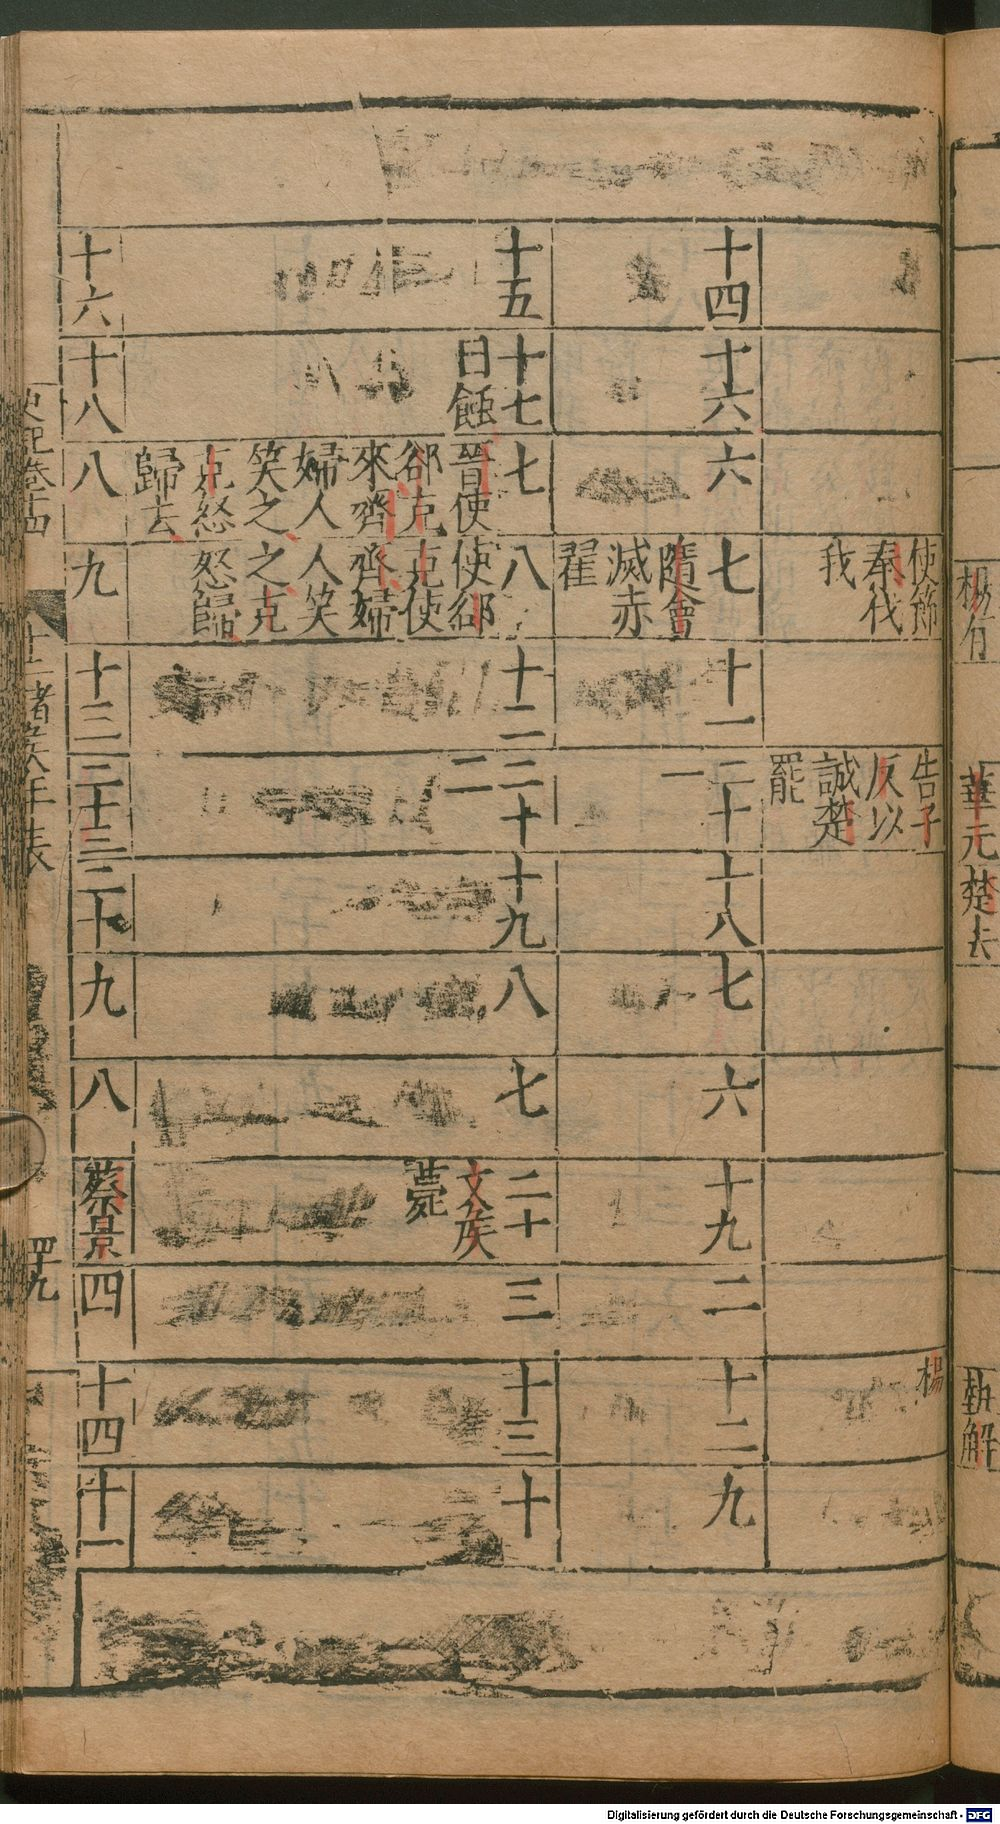 楊有
華元
楚去
執解
使節
奉伐
我
告子
反以
誠楚
罷
楊
十四
十六
六
七
隨會
滅赤
翟
十一
二十
一
十八
七
六
十九
二
十二
九
十五
十七
日蝕
七
晉使
郤克
來齊
婦人
笑之
克怒
歸去
八
使郤
克使
齊婦
人笑
之克
怒歸
十二
二十
二
十九
八
七
二十
文侯
薨
三
十三
十
十六
十八
八
九
十三
二十三
二十
九
八
蔡景
四
十四
十一
史記卷十四
十二諸侯年表
四十九
Digitalisierung gefördert durch die Deutsche Forschungsgemeinschaft - DFG